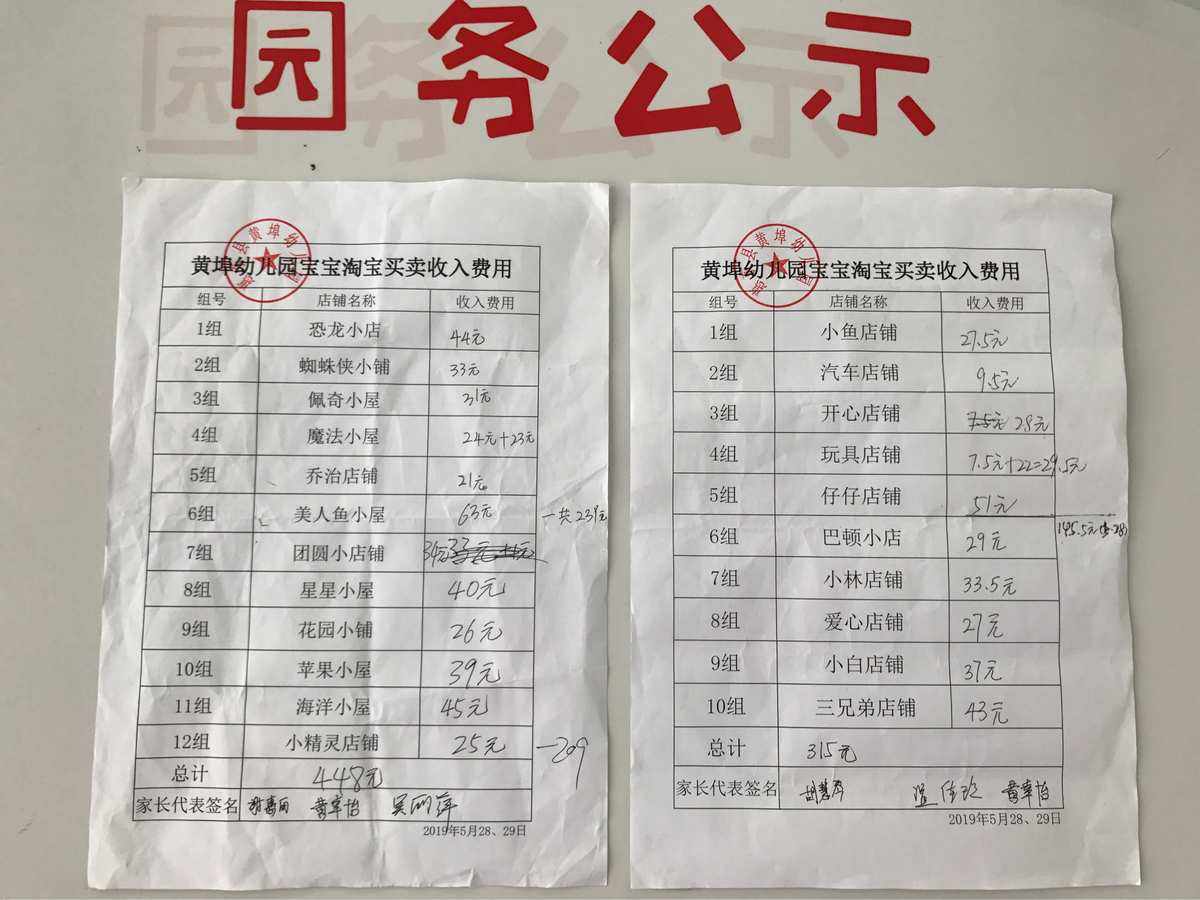 园务公示
黄埠幼儿园宝宝淘宝买卖收入费用
组号 店铺名称 收入费用
1组 恐龙小店 44元
2组 蜘蛛侠小铺 33元
3组 佩奇小屋 31元
4组 魔法小屋 24元+23元
5组 乔治店铺 21元
6组 美人鱼小屋 63元 一共239元
7组 团圆小店铺 34元
8组 星星小屋 40元
9组 花园小铺 26元
10组 苹果小屋 39元
11组 海洋小屋 45元
12组 小精灵店铺 25元 —209
总计 448元
家长代表签名 黄宰怡 吴丽萍
2019年5月28、29日
黄埠幼儿园宝宝淘宝买卖收入费用
组号 店铺名称 收入费用
1组 小鱼店铺 27.5元
2组 汽车店铺 9.5元
3组 开心店铺 7.5元 28元
4组 玩具店铺 7.5元+22=29.5元
5组 仔仔店铺 51元
145.5元
6组 巴顿小店 29元
7组 小林店铺 33.5元
8组 爱心店铺 27元
9组 小白店铺 37元
10组 三兄弟店铺 43元
总计 315元
家长代表签名 黄宰怡
2019年5月28、29日